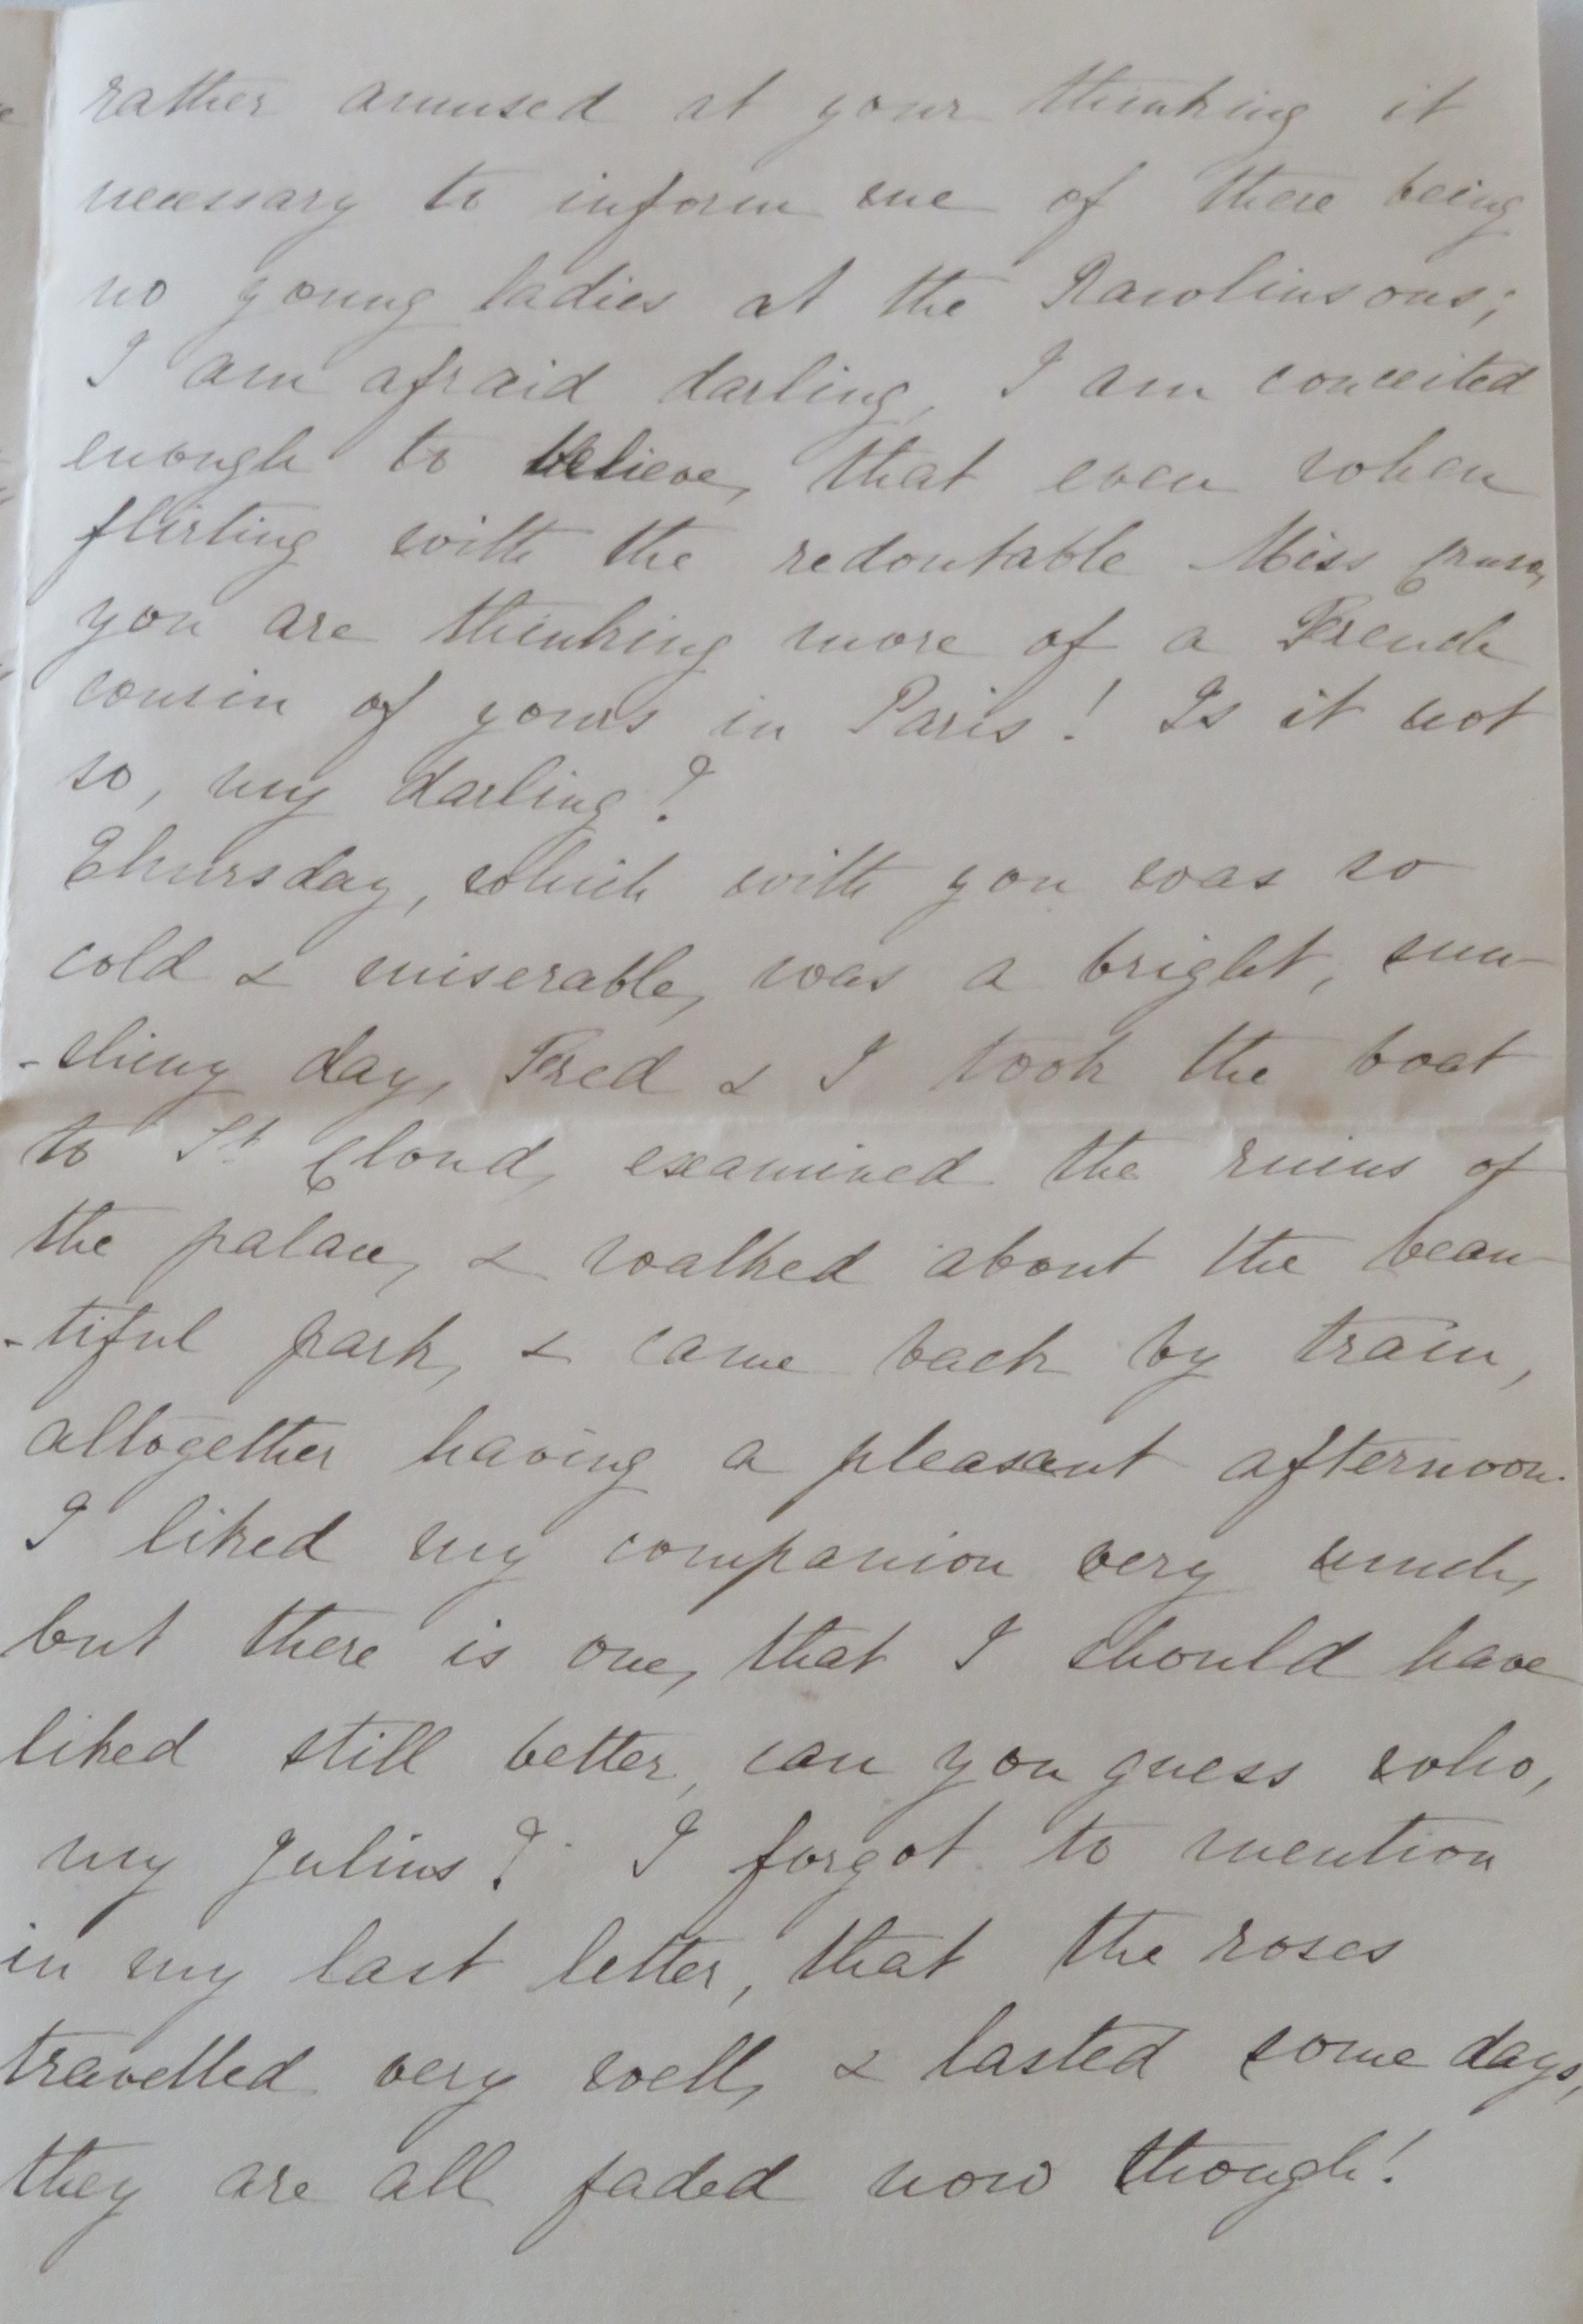 rather amused at your thinking it
necessary to inform me of there being
no young ladies at the Rawlinsons;
I am afraid darling, I am conceited
enough to believe, that even when
flirting with the redoutable Miss
you are thinking more of a French
cousin of yours in Paris! Is it not
so, my darling?
Thursday, which with you was so
cold & miserable, was a bright, sun-
-shiny day, Fred & I took the boat
to St. Cloud, examined the ruins of
the palace, & walked about the beau-
-tiful park, & came back by train,
altogether having a pleasant afternoon.
I liked my companion very much,
but there is one, that I should have
liked still better, can you guess who,
my Julius? I forgot to mention
in my last letter, that the roses
travelled very well, & lasted some days,
they are all faded now though!